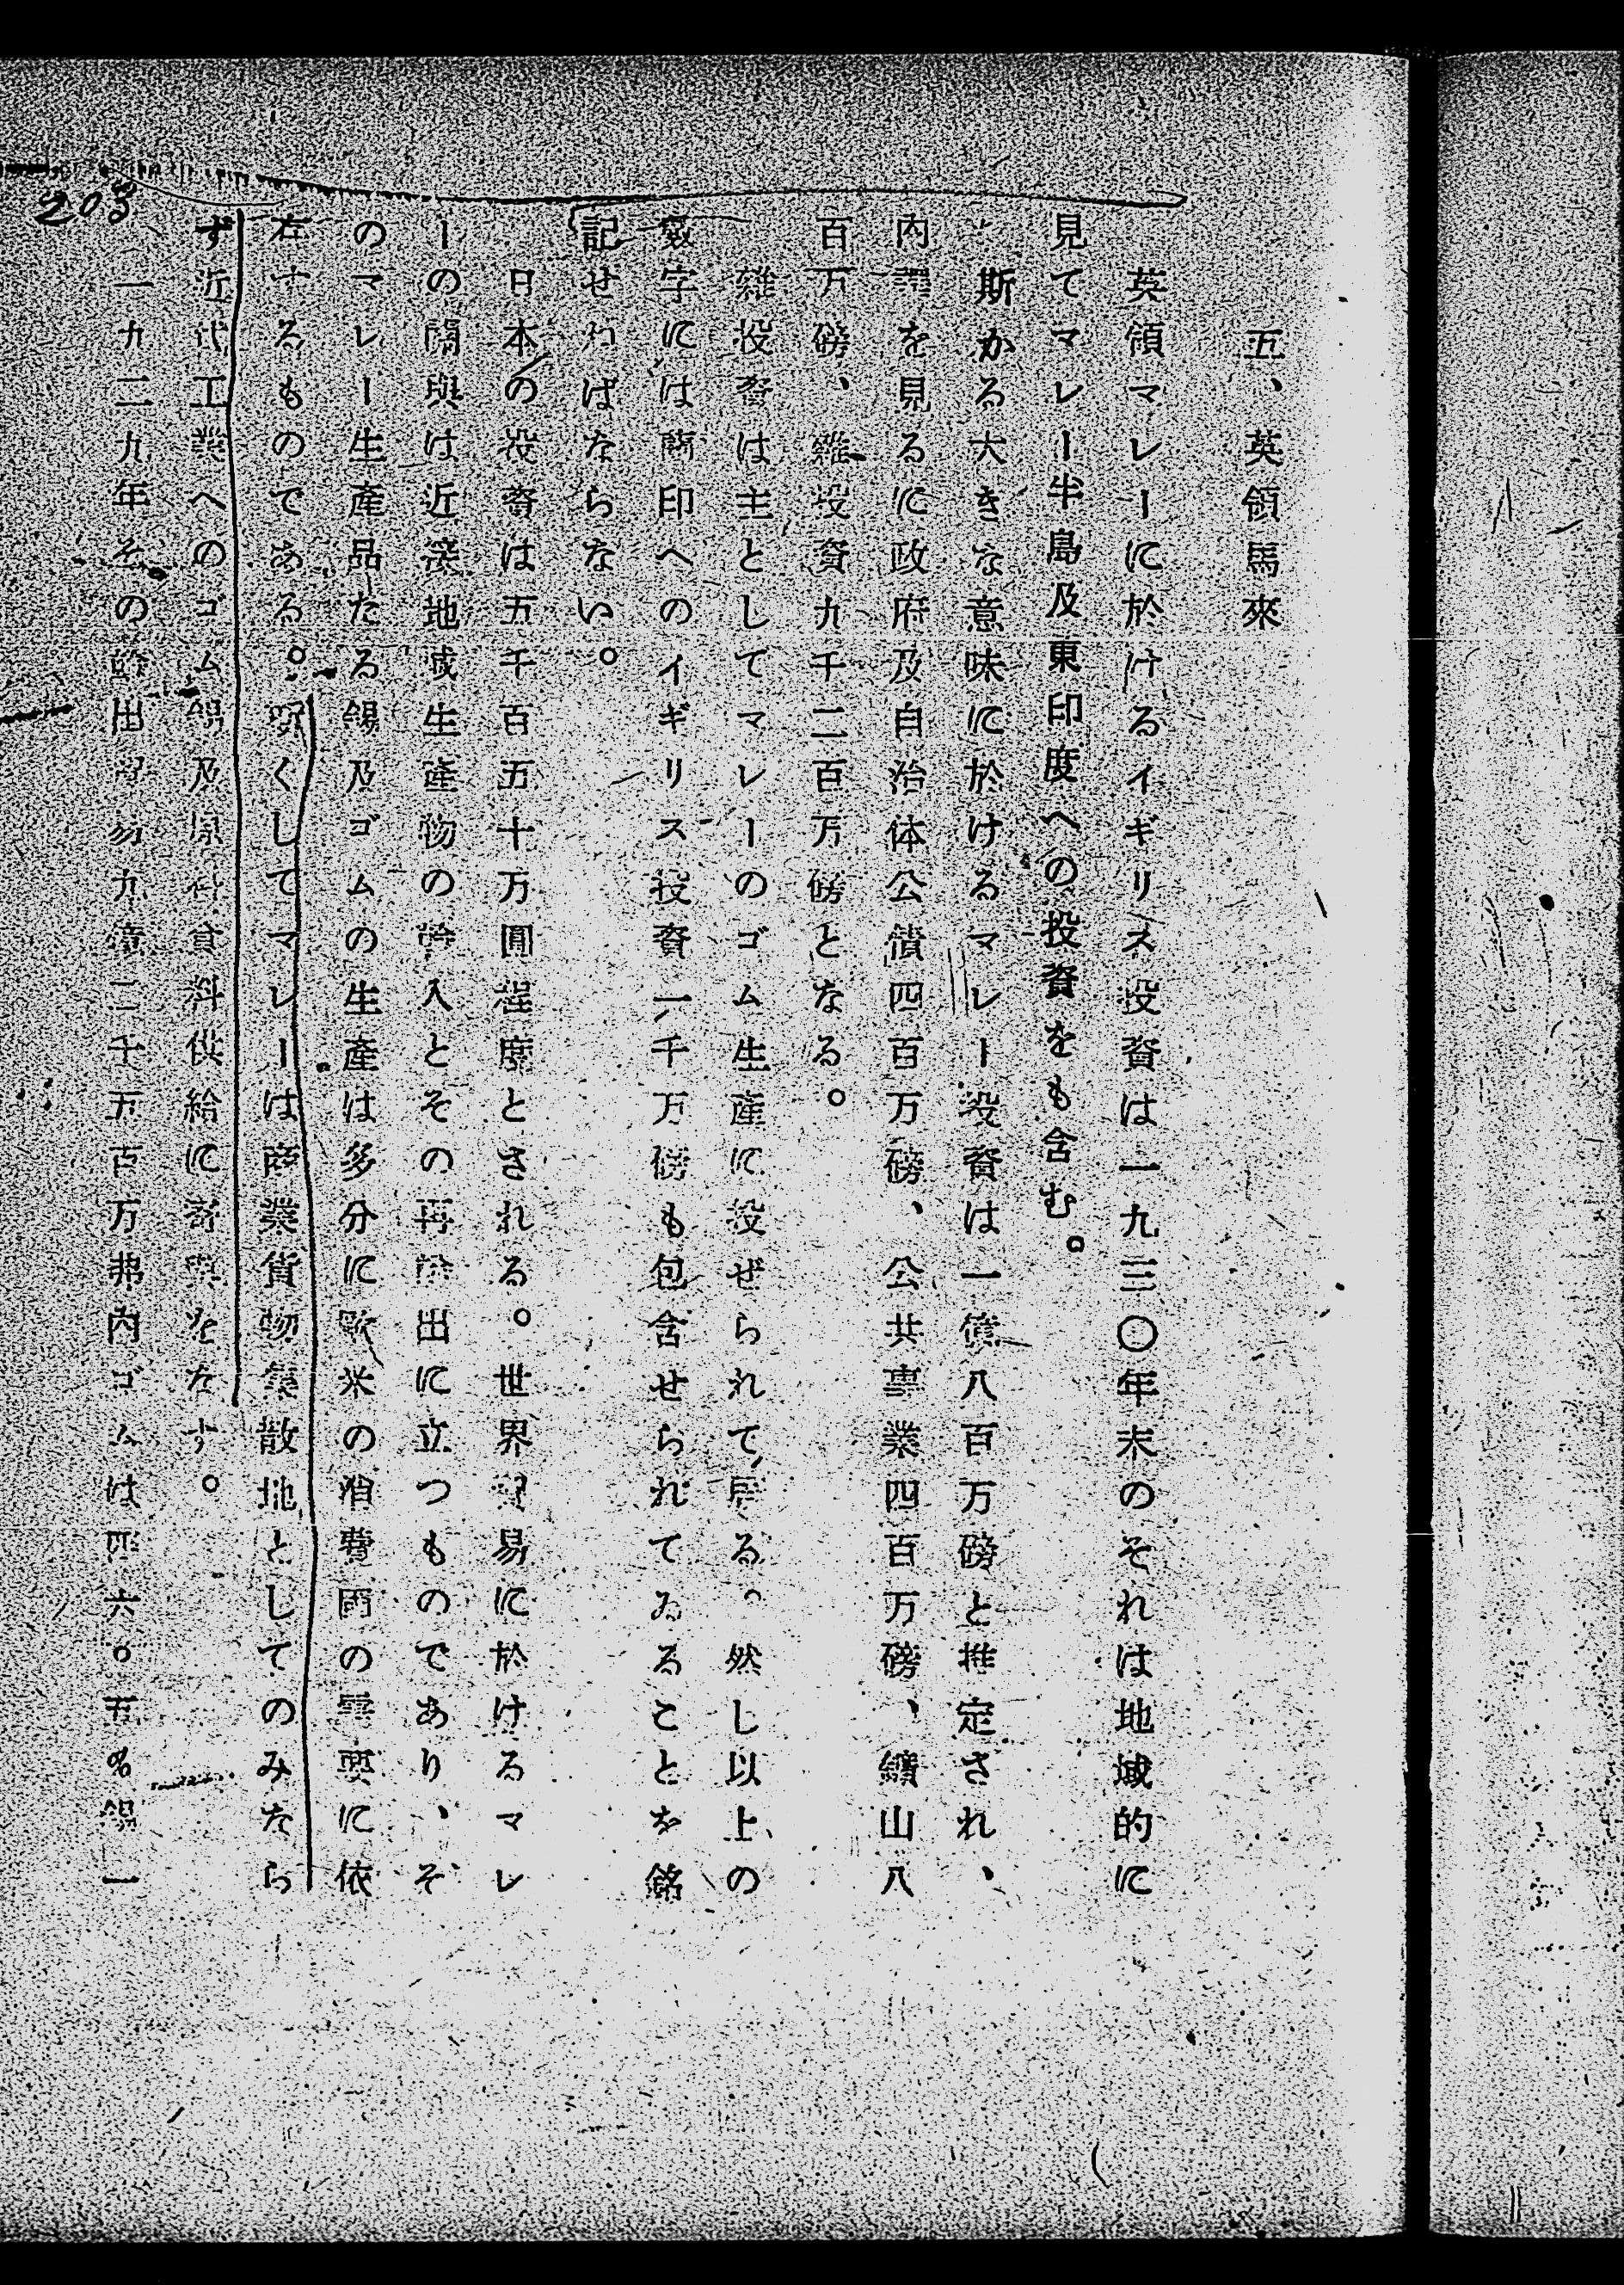 五、英領馬來
英領マレーに於けるイギリス投資は一九三〇年末のそれは地域的に
見てマレー半島及東印度への投資をも含む。
斯かる大きな意味に於けるマレー投資は一億八百万磅と推定され、
内譯を見るに政府及自治体公債四百万磅、公共事業四百万磅、鑛山八
百万磅、雜投資九千二百万磅となる。
雜投資は主としてマレーのゴム生産に投ぜられて居る。然し以上の
數字には蘭印へのイギリス投資一千万磅も包含せられてゐることを銘
記せねばならない。
日本の投資は五千百五十万圓程度とされる。世界貿易に於けるマレ
ーの關與は近接地域生産物の輸入とその再輸出に立つものであり、そ
のマレー生産品たる錫及ゴムの生産は多分に歐米の消費國の需要に依
存するものである。斯くしてマレーは商業貨物集散地としてのみなら
ず近代工業へのゴム錫及原料食料供給に寄與をなす。
一九二九年その輸出 九億二千五百万弗内ゴムは四六。五%錫一
203